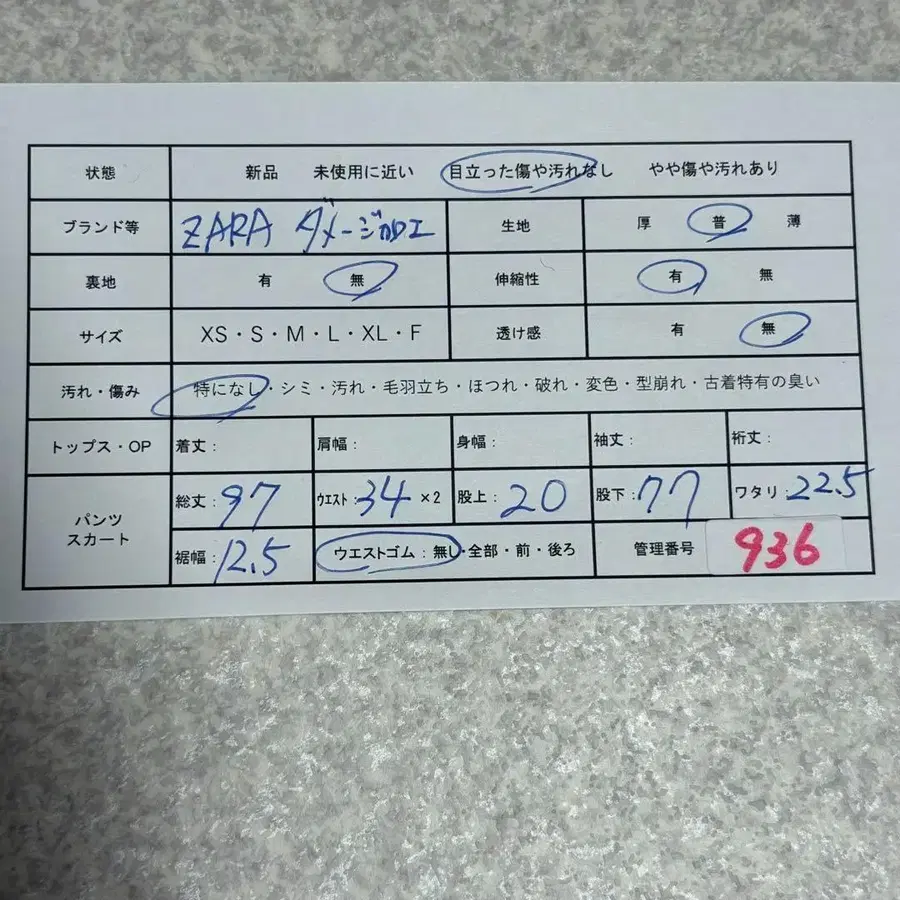 状態 新品 未使用に近い 目立った傷や汚れなし やや傷や汚れあり
ブランド等 ZARA ダメージ加工 生地 厚 普 薄
裏地 有 無 伸縮性 有 無
サイズ XS・S・M・L・XL・F 透け感 有 無
汚れ・傷み 特になし・シミ・汚れ・毛羽立ち・ほつれ・破れ・変色・型崩れ・古着特有の臭い
トップス・OP 着丈: 肩幅: 身幅: 袖丈: 裄丈:
パンツ
スカート
総丈:97 ウエスト 34 ×2 股上:20 股下:77 ワタリ:22.5
裾幅:12.5 ウエストゴム:無し・全部・前・後ろ 管理番号 936